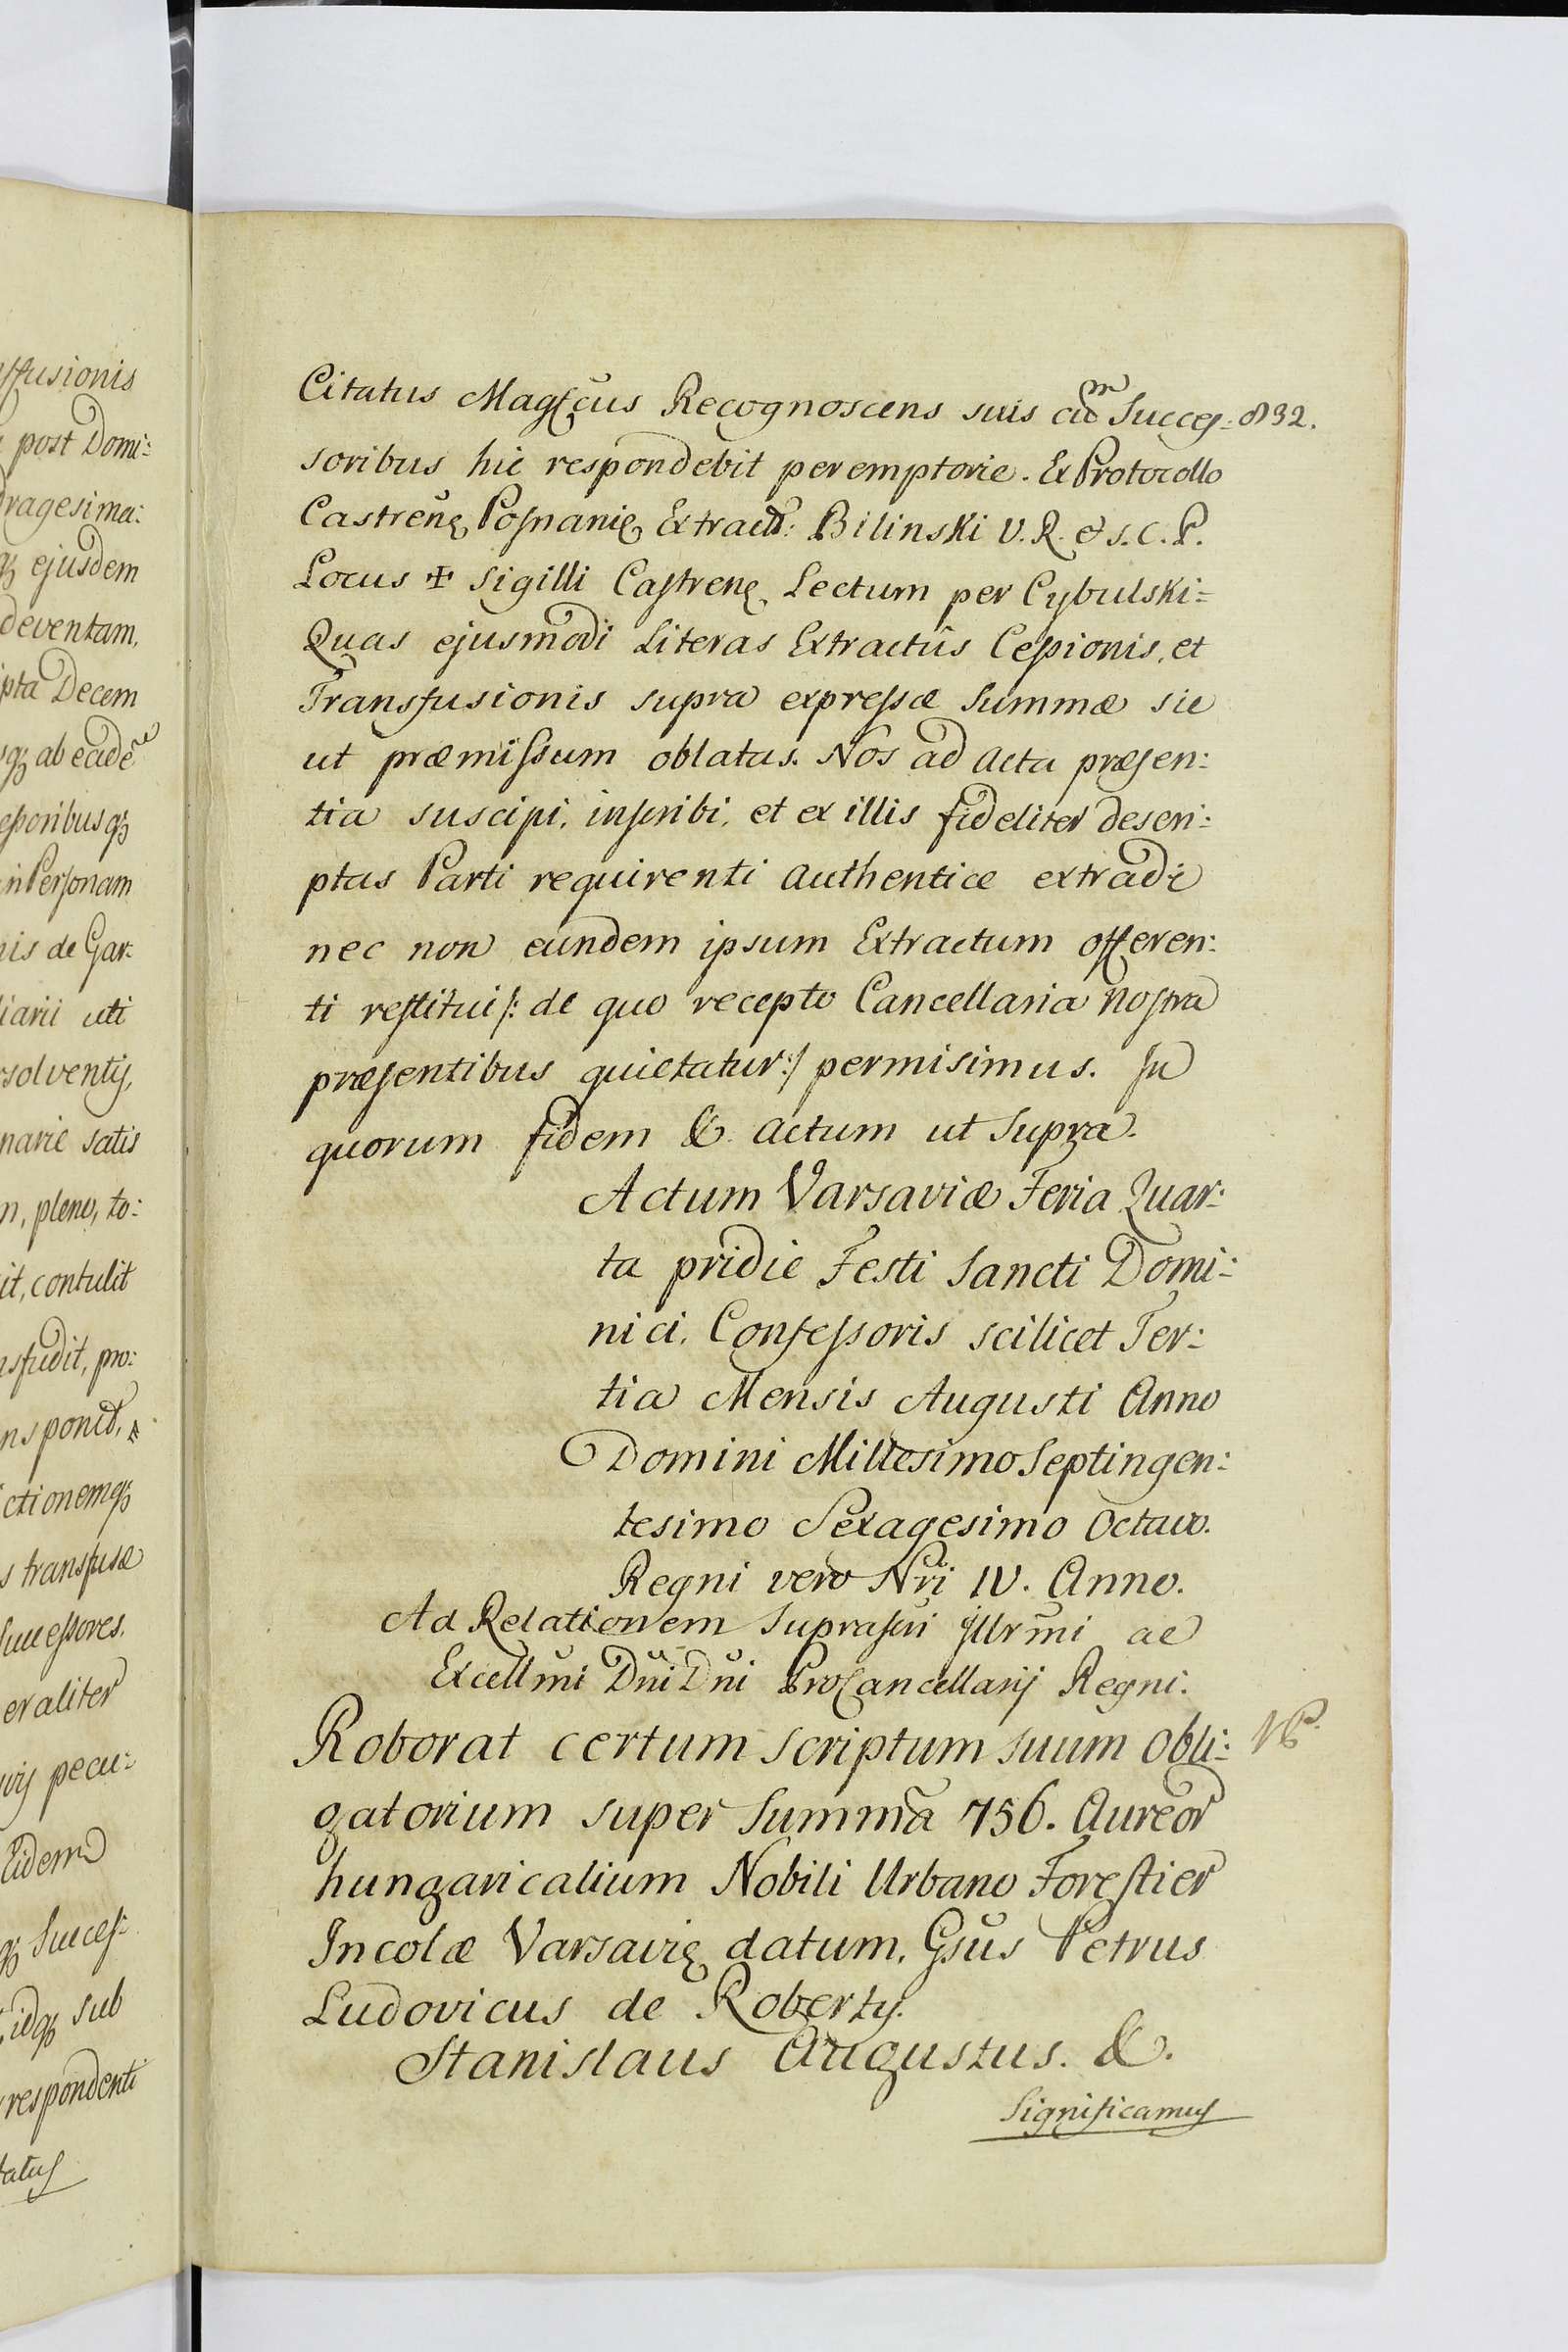 ffusionis
post Domi:
ragesima:
q3 ejusdem
deventam,
pta Decem
q3 ab eadē
essoribusq3
in Personam
nis de Gar:
liarii uti
solventis,
narie satis
n, pleno, to:
it, contulit
nsfudit, pro:
ns ponit,
ctionemq3
s transfusæ
Successores,
eraliter
vis pecu:
Eidem
q3 Succes:
idq3 sub
respondenti
tatus
Citatus Magfcus Recognoscens suis cum Succes: 832.
soribus hic respondebit peremptorie. Ex Protocollo
Castrenę Posnanię Extractū: Bilinski V. R. & S. C. P.
Locus ✠ Sigilli Castrenę Lectum per Cybulski=
Quas ejusmodi Literas Extractûs Cessionis, et
Transfusionis supra expressæ Summæ sic
ut præmissum oblatas. Nos ad Acta præsen:
tia suscipi, inscribi, et ex illis fideliter descri:
ptas Parti requirenti Authentice extradi
nec non eundem ipsum Extractum offeren:
ti restitui /: de quo recepto Cancellaria Nostra
præsentibus quietatur :/ permisimus. In
quorum fidem &. Actum ut Supra.
Actum Varsaviæ Feria Quar:
ta pridie Festi Sancti Domi:
nici, Confessoris scilicet Ter:
tia Mensis Augusti Anno
Domini Millesimo Septingen:
tesimo Sexagesimo Octavo.
Regni vero Nri IV. Anno.
Ad Relationem Suprascri Illrmi ac
Excellmi Dni Dni ProCancellarij Regni.
Roborat certum Scriptum suum Obli:
gatorium super Summā 756. Aureor
hungaricalium Nobili Urbano Forestier
Incolæ Varsavię datum, Gsus Petrus
Ludovicus de Roberty.
Stanislaus Augustus. &.
Significamus